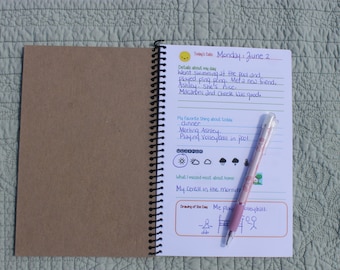 Today's Date: Monday, June 2
Details about my day
Went swimming at the pool and
played ping pong. Met a new friend,
Ashley. She's nice.
Macaroni and cheese was good.
My favorite thing about today
dinner
Meeting Ashley
Playing in pool
What I missed most about home
My cereal in the morning
Drawing of the Day
Me